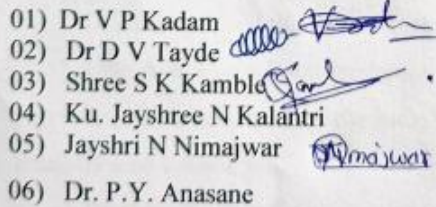 01) Dr V P Kadam
02) Dr D V Tayde
03) Shree S K Kamble
04) Ku. Jayshree N Kalantri
05) Jayshri N Nimajwar
06) Dr. P.Y. Anasane